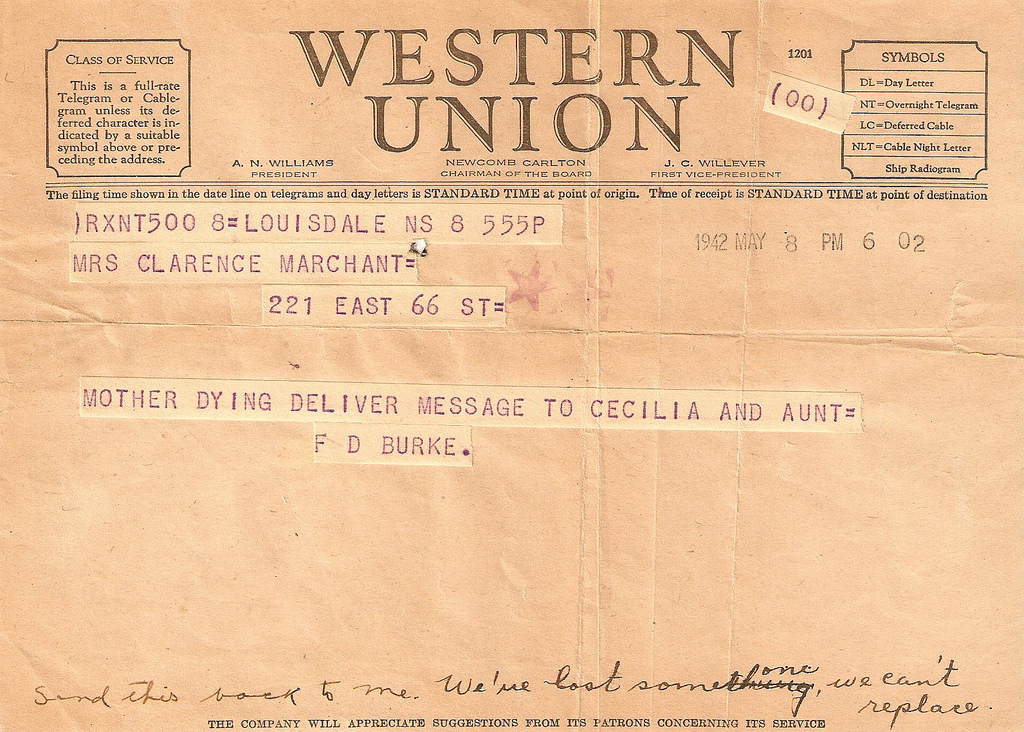 WESTERN
UNION
1201
(00)
CLASS OF SERVICE
This is a full-rate
Telegram or Cable-
gram unless its de-
ferred character is in-
dicated by a suitable
symbol above or pre-
ceding the address.
SYMBOLS
DL=Day Letter
NT=Overnight Telegram
LC=Deferred Cable
NLT=Cable Night Letter
Ship Radiogram
A. N. WILLIAMS
PRESIDENT
NEWCOMB CARLTON
CHAIRMAN OF THE BOARD
J. C. WILLEVER
FIRST VICE-PRESIDENT
The filing time shown in the date line on telegrams and day letters is STANDARD TIME at point of origin. Time of receipt is STANDARD TIME at point of destination
)RXNT500 8=LOUISDALE NS 8 555P
1942 MAY 8 PM 6 02
MRS CLARENCE MARCHANT=
221 EAST 66 ST=
MOTHER DYING DELIVER MESSAGE TO CECILIA AND AUNT=
F D BURKE.
Send this back to me. We've lost something one, we can't
replace.
THE COMPANY WILL APPRECIATE SUGGESTIONS FROM ITS PATRONS CONCERNING ITS SERVICE